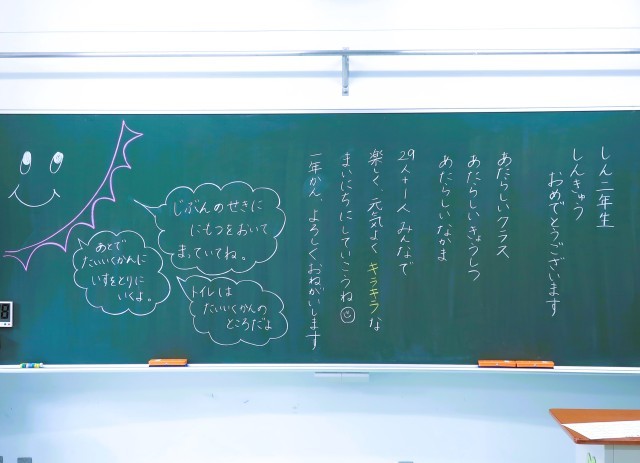 しん二年生
しんきゅう
おめでとうございます
あたらしいクラス
あたらしいきょうしつ
あたらしいなかま
29人+1人 みんなで
楽しく、元気よく キラキラな
まいにちにしていこうね
一年かん、よろしくおねがいします
じぶんのせきに
にもつをおいて
まっていてね。
あとで
たいいくかんに
いすをとりに
いくよ。
トイレは
たいいくかんの
ところだよ